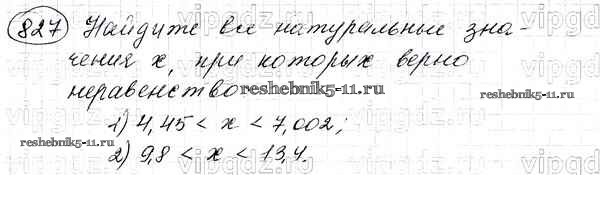 827 Найдите все натуральные зна-
чения x, при которых верно
неравенство
reshebnik5-11.ru
reshebnik5-11.ru
1) 4,45 < x < 7,002;
reshebnik5-11.ru
2) 9,8 < x < 13,4.